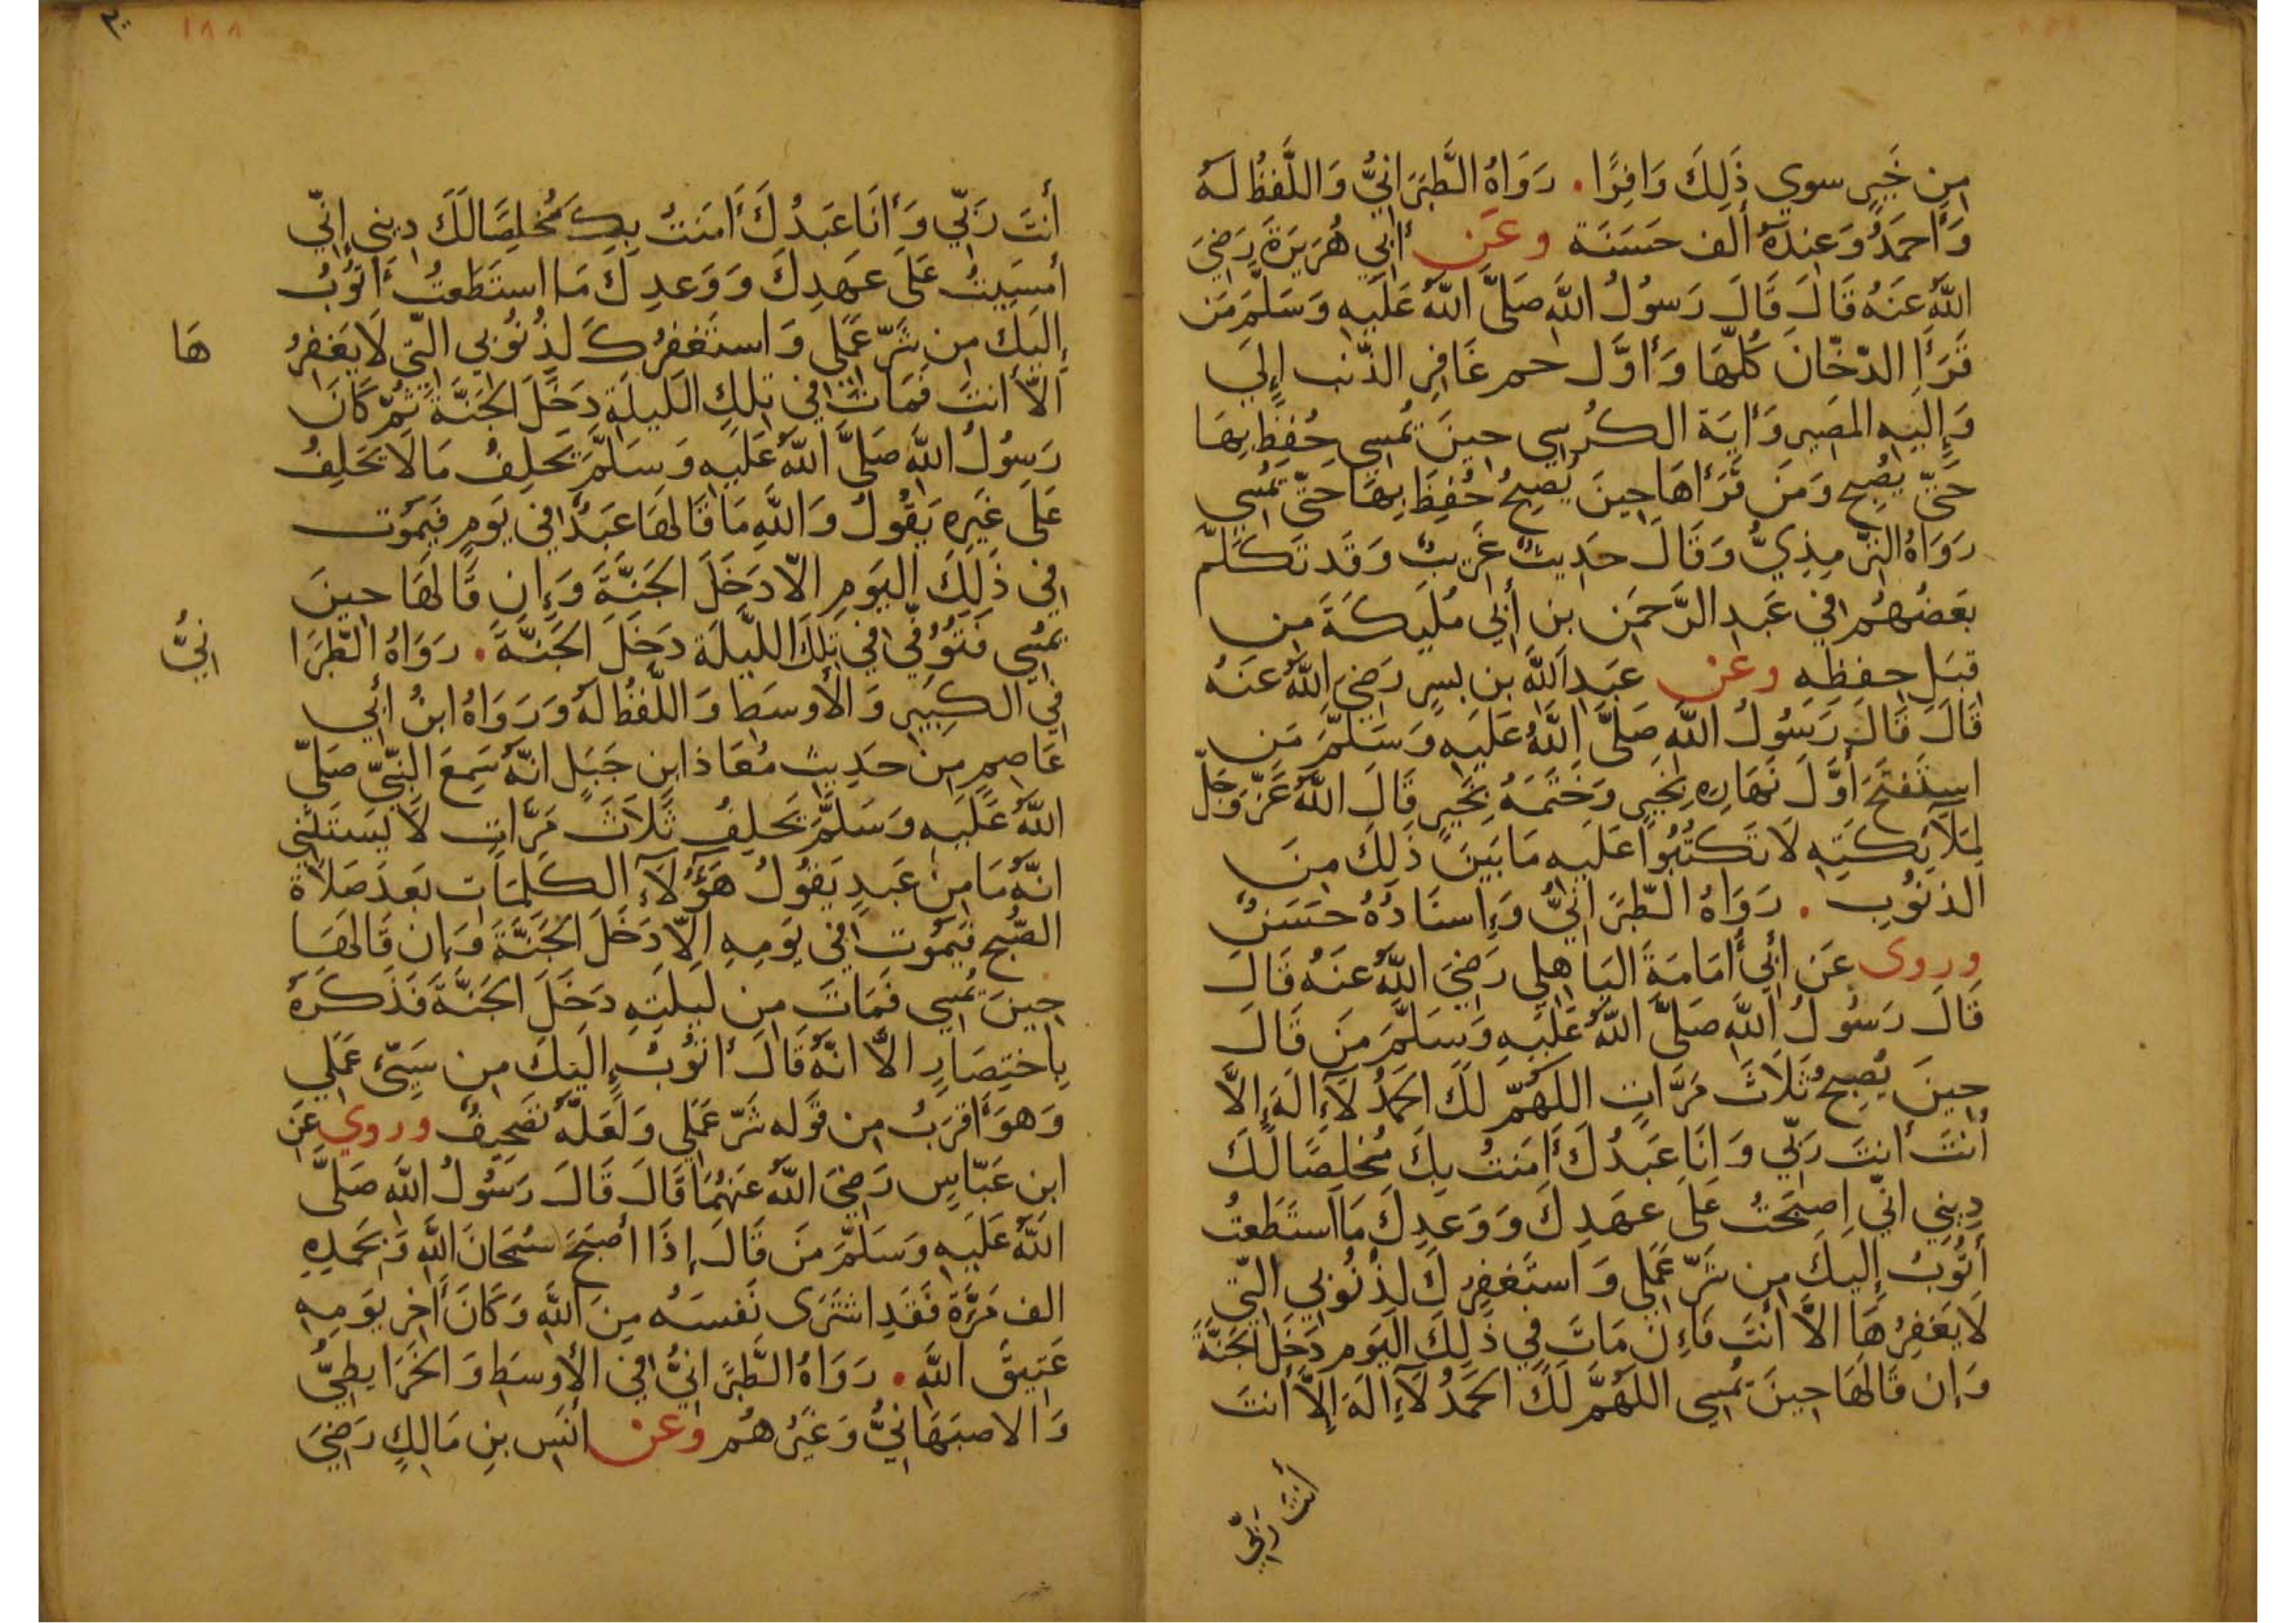 مِن خَيرٍ سوي ذَلِكَ وَافِرًا . رَوَاهُ الطَّبَرَانِيُّ وَاللَّفظُ لَهُ
وَأَحمَدُ وَعِندَهُ أَلف حَسَنَة وعَن أَبِي هُرَيرَةَ رَضِيَ
اللَّهُ عَنهُ قَالَ قَالَ رَسُولُ اللَّهِ صَلَّى اللَّهُ عَلَيهِ وَسَلَّمَ مَن
قَرَأَ الدّخّانَ كُلّهَا وَأَوَّل حم غَافِرِ الذّنبِ إِلَي
وَإِلَيهِ المَصِير وَأيَة الكُرسِي حِينَ يُمسِي حُفِظَ بِهَا
حَتّي يُصبِح وَمَن قَرَأَهَا حِينَ يُصبِحُ حُفِظَ بِهَا حَتَّي يُمسِي
رَوَاهُ التِّرمِذِيُّ وَقَالَ حَدِيثٌ غَرِيبٌ وَقَد تَكَلَّم
بَعضُهُم فِي عَبدِ الرَّحمَن بن أَبِي مُلَيكَةَ مِن
قِبَلِ حِفظِهِ وعَن عَبدِ اللَّهِ بن بسرٍ رَضِيَ اللَّهُ عَنهُ
قَالَ قَالَ رَسُولُ اللَّهِ صَلَّى اللَّهُ عَلَيهِ وَسَلَّمَ مَن
استَفتَحَ أَوَّلَ نَهَارِهِ بِخَيرٍ وَخَتَمَهُ بِخَيرٍ قَالَ اللَّهُ عَزّ وَجَلّ
لِمَلآئِكَتِهِ لَا تَكتُبُوا عَلَيهِ مَا بَينَ ذَلِكَ مِنَ
الذنُوبِ . رَوَاهُ الطّبَرَانِيُّ وَإِسنَادُهُ حَسَنٌ
وروى عَن أَبِي أُمَامَةَ البَاهِلِي رَضِيَ اللَّهُ عَنهُ قَالَ
قَالَ رَسُولُ اللَّهِ صَلَّى اللَّهُ عَلَيهِ وَسَلَّمَ مَن قَالَ
حِينَ يُصبِحُ ثَلَاثَ مَرَّاتٍ اللَّهُمَّ لَكَ الحَمدُ لَآ إِلَهَ إِلَّا
أَنتَ أَنتَ رَبِّي وَأَنَا عَبدُكَ أَمَنتُ بِكَ مُخلِصًا لَكَ
دِينِي انِّي اصبَحتُ عَلَى عَهدِكَ وَوَعدِكَ مَا استَطَعتُ
أَتُوبُ إِلَيكَ مِن شَرِّ عَمَلِي وَاستَغفِرُكَ لِذُنُوبِي الّتِي
لَا يَغفِرُهَا الَّا أَنتَ فَإِن مَاتَ فِي ذَلِكَ اليَومِ دَخَلَ الجَنَّةَ
وَإِن قَالَهَا حِينَ يُمسِي اللَّهُمَّ لَكَ الحَمدُ لَآ إِلَهَ إِلَّا أَنتَ
أَنتَ رَبِّي
١٨٨
أَنتَ رَبِّي وَأَنَا عَبدُكَ أَمَنتُ بِكَ مُخلِصًا لَكَ دِينِي إِنِّي
أَمسَيتُ عَلَى عَهدِكَ وَوَعدِكَ مَا استَطَعتُ أَتُوبُ
إِلَيكَ مِن شَرِّ عَمَلِي وَاستَغفِرُكَ لِذُنُوبِي الّتِي لَا يَغفِرُ هَا
الَّا أَنتَ فَمَاتَ فِي تِلكَ اللَّيلَةِ دَخَلَ الجَنَّةَ ثُمّ كَانَ
رَسُولُ اللَّهِ صَلَّى اللَّهُ عَلَيهِ وَسَلَّمَ يَحلِفُ مَا لَا يَحلِفُ
عَلَى غَيرِهِ يَقُولُ وَاللَّهِ مَا قَالَهَا عَبدٌ فِي يَومٍ فَيَمُوت
فِي ذَلِكَ اليَومِ الّا دَخَلَ الجَنَّةَ وَإِن قَالَهَا حِينَ
يُمسِي فَتُوُفِّي فِي تِلكَ اللَّيلَةِ دَخَلَ الجَنَّةَ . رَوَاهُ الطَّبَرَا نِيُّ
فِي الكَبِيرِ وَالأَوسَطِ وَاللَّفظُ لَهُ وَرَوَاهُ ابنُ أَبِي
عَاصِمٍ مِن حَدِيثِ مُعَاذ ابنِ جَبَلٍ انّهُ سَمِعَ النَّبِيّ صَلَّي
اللَّهُ عَلَيهِ وَسَلَّمَ يَحلِفُ ثَلَاثَ مَرَّاتٍ لَا يَستَثنِي
انّهُ مَا مِن عَبدٍ يَقُولُ هَؤُلَآءِ الكَلِمَاتِ بَعدَ صَلَاةِ
الصُّبحِ فَيَمُوتُ فِي يَومِهِ الَّا دَخَلَ الجَنَّةَ وَإِن قَالَهَا
حِينَ يُمسِي فَمَاتَ مِن لَيلَتِهِ دَخَلَ الجَنَّةَ فَذَكَرَهُ
بِاختِصَارٍ الَّا انّهُ قَالَ أَتُوبُ إِلَيكَ مِن سَيّئِ عَمَلِي
وَهوَ أَقرَبُ مِن قَولِهِ شَرِّ عَمَلِي وَلَعَلّهُ تَصحِيفٌ وروي عَن
ابنِ عَبّاسٍ رَضِيَ اللَّهُ عَنهُمَا قَالَ قَالَ رَسُولُ اللَّهِ صَلَّى
اللَّهُ عَلَيهِ وَسَلَّمَ مَن قَالَ إِذَا أَصبَحَ سُبحَانَ اللَّهِ وَبِحَمدِهِ
الف مَرَّةً فَقَدِ اشتَرَى نَفسَهُ مِنَ اللَّهِ وَكَانَ أَخِر يَومِهِ
عَتِيقَ اللَّهِ . رَوَاهُ الطَّبَرَانِيُّ فِي الأَوسَطِ وَالخَرَايطِيُّ
وَالاصبَهَانِيُّ وَغَيرُهُم وعَن أَنَسِ بنِ مَالِكٍ رَضِيَ